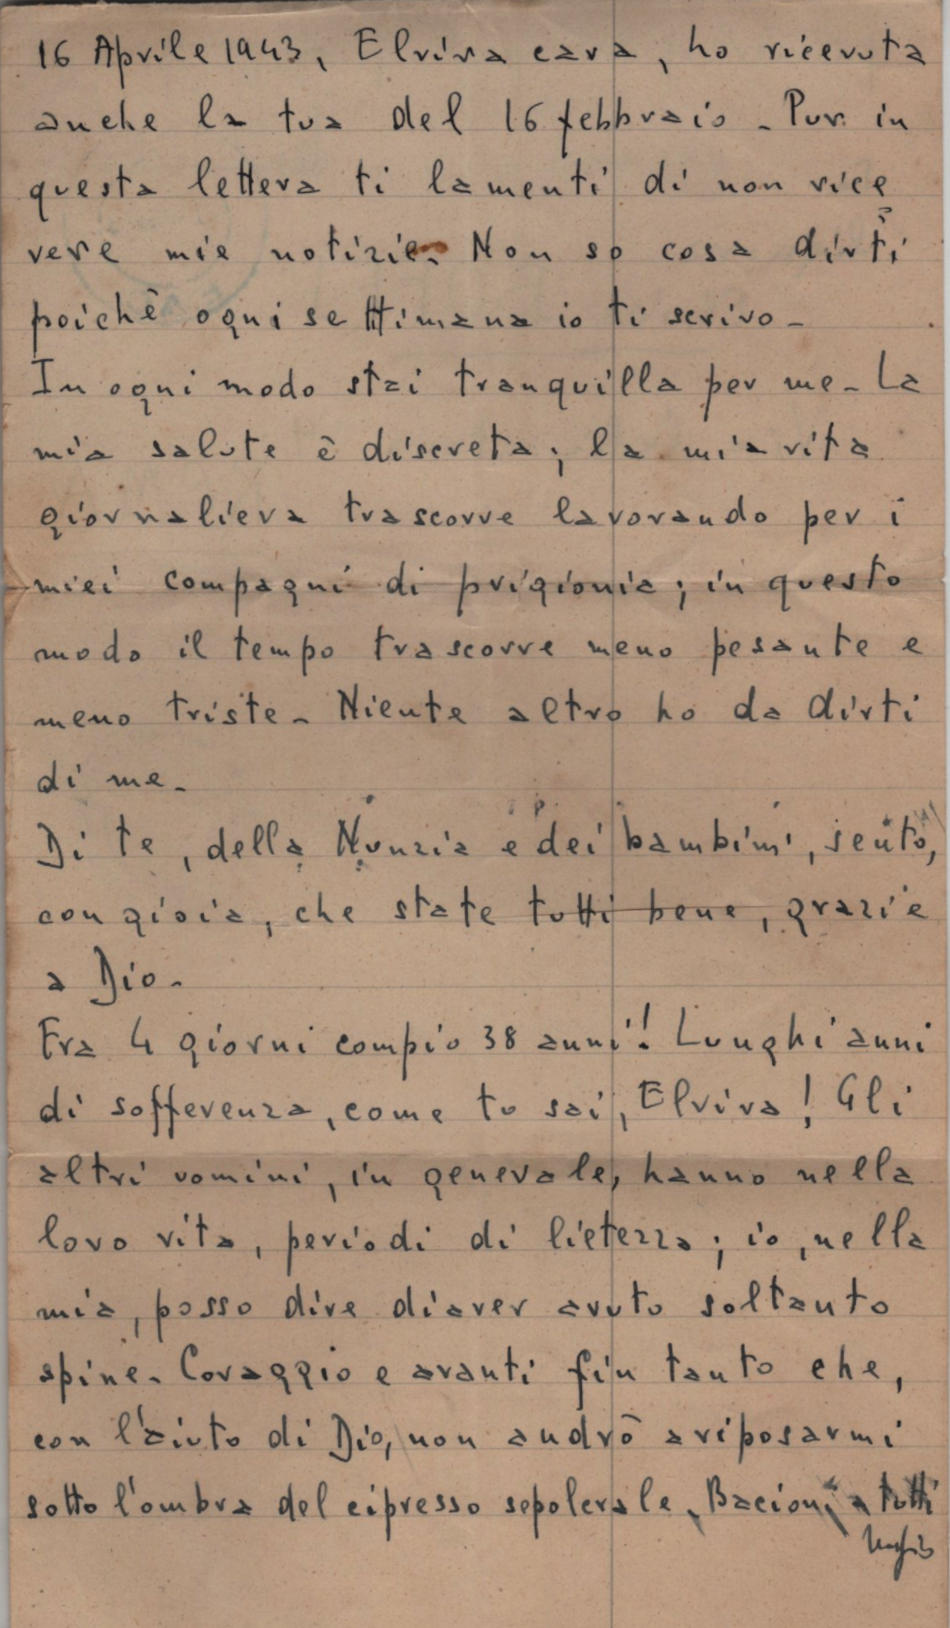 16 Aprile 1943, Elvira cara, ho ricevuta
anche la tua del 16 febbraio - Pur in
questa lettera ti lamenti di non rice
vere mie notizie. Non so cosa dirti
poichè ogni settimana io ti scrivo -
In ogni modo stai tranquilla per me - La
mia salute è discreta; la mia vita
giornaliera trascorre lavorando per i
miei compagni di prigionia; in questo
modo il tempo trascorre meno pesante e
meno triste - Niente altro ho da dirti
di me -
Di te, della Nunzia e dei bambini, sento,
con gioia, che state tutti bene, grazie
a Dio -
Fra 4 giorni compio 38 anni! Lunghi anni
di sofferenza, come tu sai, Elvira! Gli
altri uomini, in generale, hanno nella
loro vita, periodi di lietezza; io, nella
mia, posso dire di aver avuto soltanto
spine - Coraggio e avanti fin tanto che,
con l'aiuto di Dio, non andrò a riposarmi
sotto l'ombra del cipresso sepolcrale. Bacioni a tutti